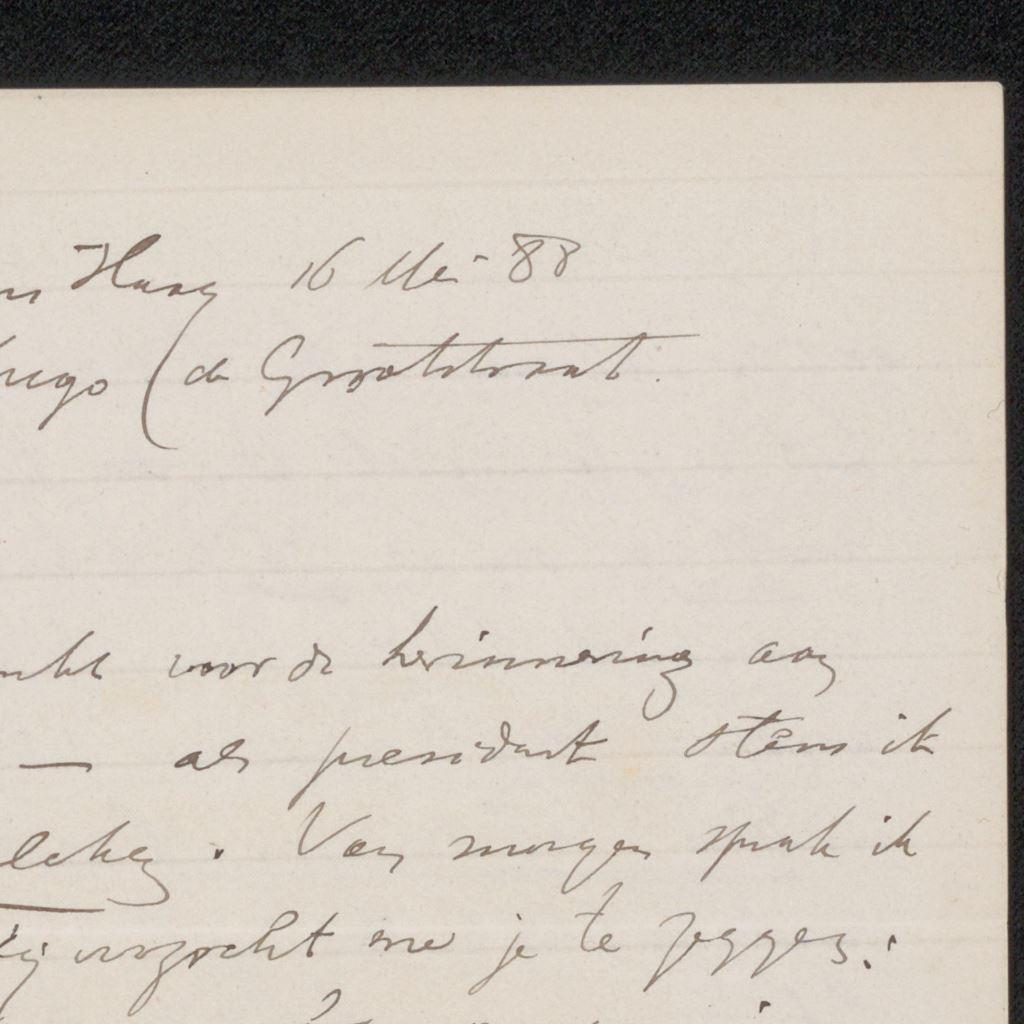 Haag 16 Mei 88
Hugo de Grootstraat.
voor de herinnering aan
— als president stem ik
Van morgen sprak ik
hij verzocht me je te zeggen: